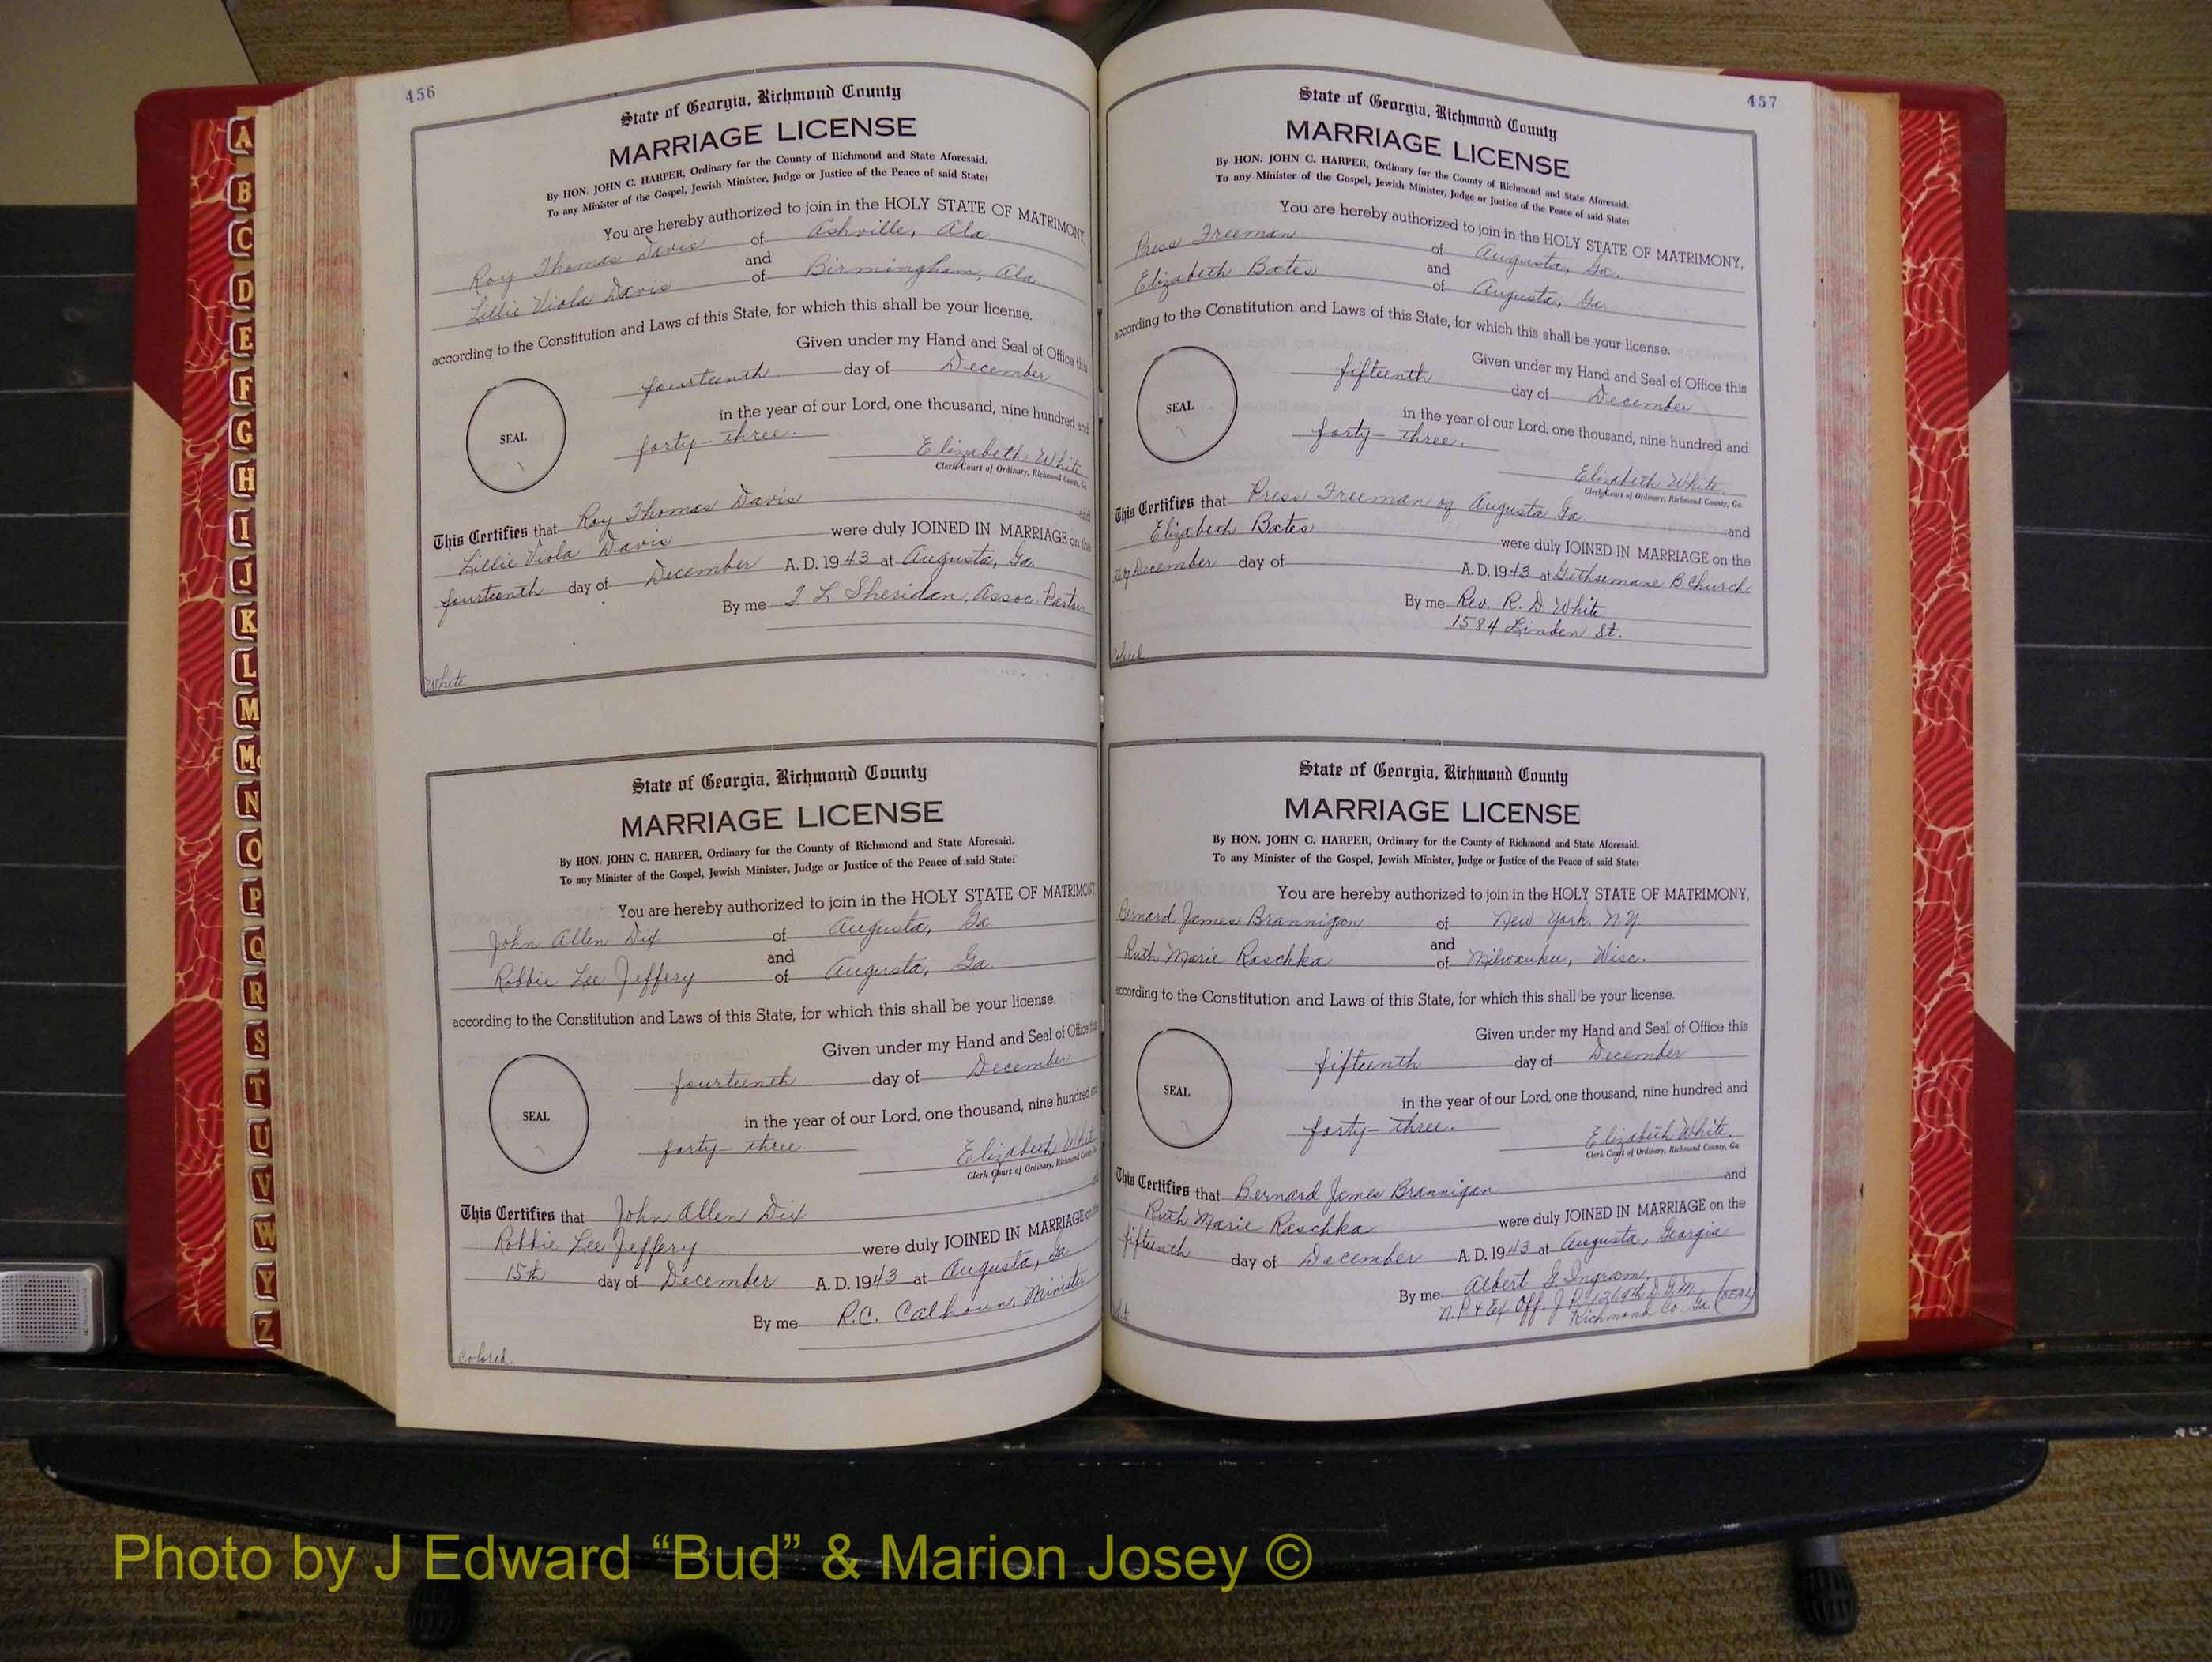 456
State of Georgia, Richmond County
MARRIAGE LICENSE
By HON. JOHN C. HARPER, Ordinary for the County of Richmond and State Aforesaid.
To any Minister of the Gospel, Jewish Minister, Judge or Justice of the Peace of said State:
You are hereby authorized to join in the HOLY STATE OF MATRIMONY,
Roy Thomas Davis of Ashville, Ala.
and
Lillie Viola Davis of Birmingham, Ala.
according to the Constitution and Laws of this State, for which this shall be your license.
Given under my Hand and Seal of Office this
fourteenth day of December
in the year of our Lord, one thousand, nine hundred and
SEAL
forty-three.
Elizabeth White
Clerk Court of Ordinary, Richmond County, Ga
This Certifies that Roy Thomas Davis and
Lillie Viola Davis were duly JOINED IN MARRIAGE on the
fourteenth day of December A. D. 1943 at Augusta, Ga.
By me T L Sheridan, Assoc. Pastor
White
State of Georgia, Richmond County
MARRIAGE LICENSE
By HON. JOHN C. HARPER, Ordinary for the County of Richmond and State Aforesaid.
To any Minister of the Gospel, Jewish Minister, Judge or Justice of the Peace of said State:
You are hereby authorized to join in the HOLY STATE OF MATRIMONY
John Allen Dix of Augusta, Ga
and
Robbie Lee Jeffery of Augusta, Ga.
according to the Constitution and Laws of this State, for which this shall be your license.
Given under my Hand and Seal of Office this
fourteenth day of December
in the year of our Lord, one thousand, nine hundred and
SEAL
forty-three
Elizabeth White
Clerk Court of Ordinary, Richmond County
This Certifies that John Allen Dix and
Robbie Lee Jeffery were duly JOINED IN MARRIAGE on the
15th day of December A. D. 1943 at Augusta, Ga
By me R.C. Calhoun, Minister
Colored.
457
State of Georgia, Richmond County
MARRIAGE LICENSE
By HON. JOHN C. HARPER, Ordinary for the County of Richmond and State Aforesaid.
To any Minister of the Gospel, Jewish Minister, Judge or Justice of the Peace of said State:
You are hereby authorized to join in the HOLY STATE OF MATRIMONY,
Press Freeman of Augusta, Ga.
and
Elizabeth Bates of Augusta, Ga.
according to the Constitution and Laws of this State, for which this shall be your license.
Given under my Hand and Seal of Office this
fifteenth day of December
in the year of our Lord, one thousand, nine hundred and
SEAL
forty-three.
Elizabeth White.
Clerk Court of Ordinary, Richmond County, Ga.
This Certifies that Press Freeman of Augusta Ga. and
Elizabeth Bates were duly JOINED IN MARRIAGE on the
December day of A. D. 1943 at Gethsemane B. Church
By me Rev. R. D. White
1584 Linden St.
Colored
State of Georgia, Richmond County
MARRIAGE LICENSE
By HON. JOHN C. HARPER, Ordinary for the County of Richmond and State Aforesaid.
To any Minister of the Gospel, Jewish Minister, Judge or Justice of the Peace of said State:
You are hereby authorized to join in the HOLY STATE OF MATRIMONY,
Bernard James Brannigan of New York, N.Y.
and
Ruth Marie Raschka of Milwaukee, Wisc.
according to the Constitution and Laws of this State, for which this shall be your license.
Given under my Hand and Seal of Office this
fifteenth day of December
in the year of our Lord, one thousand, nine hundred and
SEAL
forty-three.
Elizabeth White.
Clerk Court of Ordinary, Richmond County, Ga
This Certifies that Bernard James Brannigan and
Ruth Marie Raschka were duly JOINED IN MARRIAGE on the
fifteenth day of December A. D. 1943 at Augusta, Georgia
By me Albert G. Ingram,
N.P. & Ex Off. J.P. 1269th D.G.M.
Richmond Co. Ga. (SEAL)
A
B
C
D
E
F
G
H
I
J
K
L
M
Mc
N
O
P
Q
R
S
T
U
V
W
Y
Z
Photo by J Edward “Bud” & Marion Josey ©